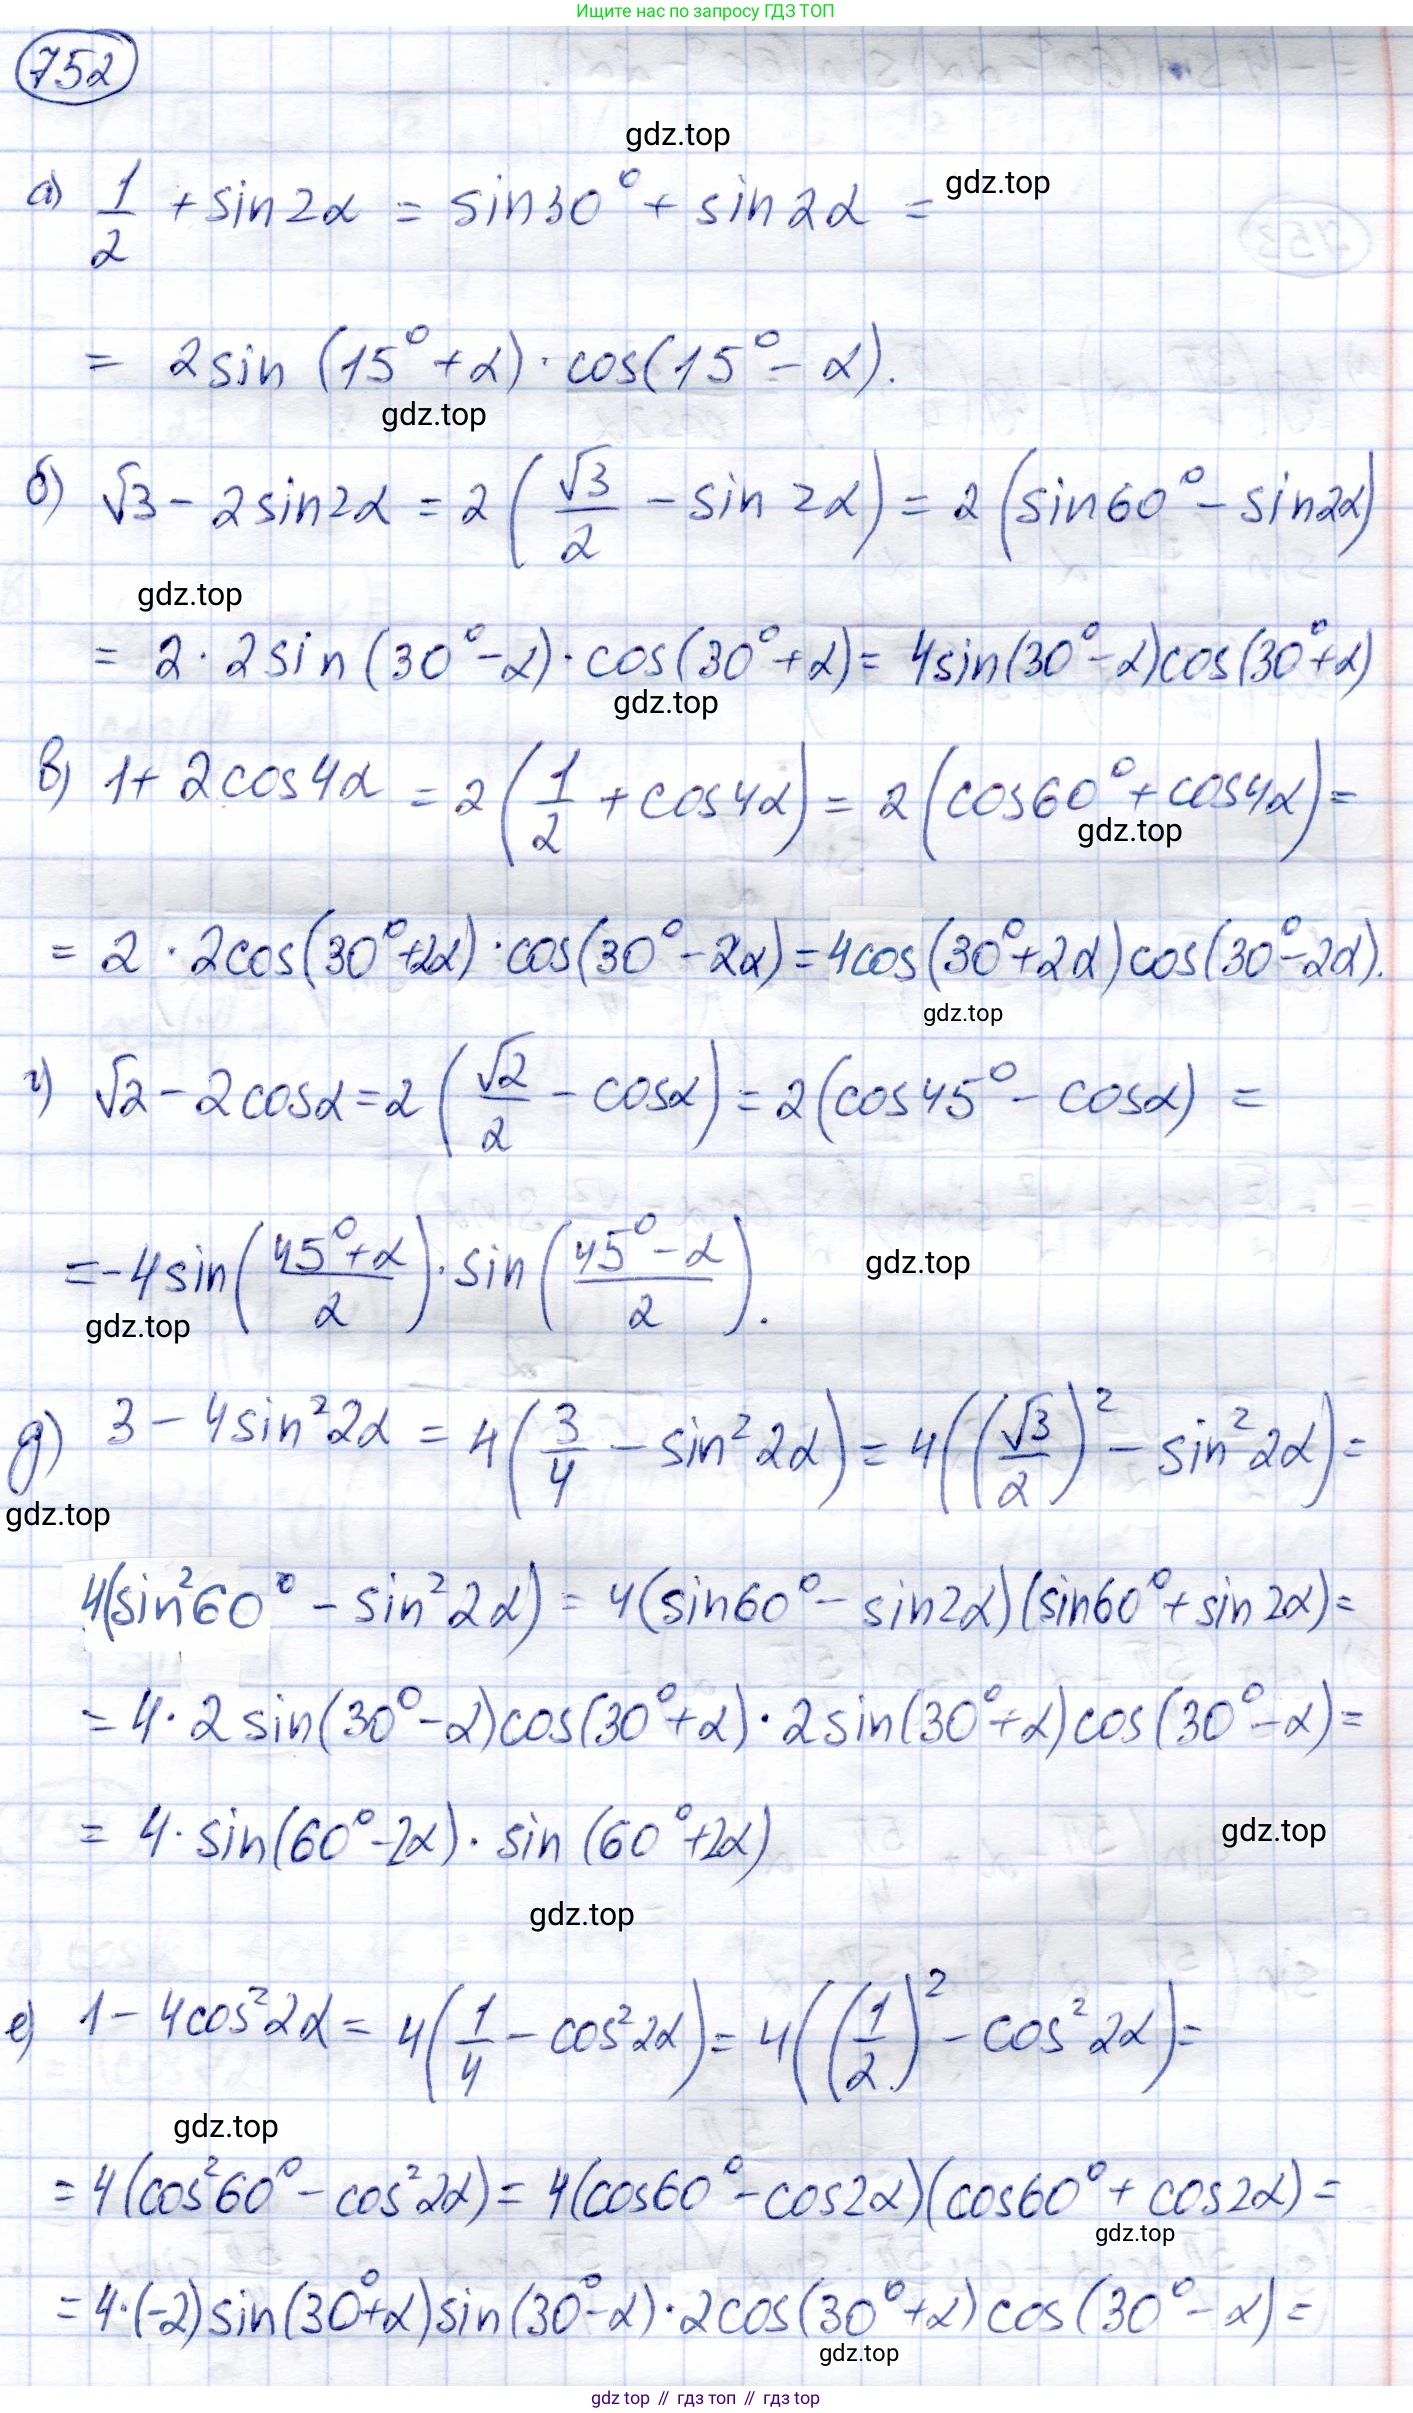 Ищите нас по запросу ГДЗ ТОП
752
gdz.top
а) 1/2 + sin2α = sin30° + sin2α =
gdz.top
= 2sin (15° + α) · cos(15° − α).
gdz.top
б) √3 − 2sin2α = 2(√2/2 − sin 2α) = 2(sin60° − sin2α)
gdz.top
= 2 · 2sin(30° − α) · cos(30° + α) = 4sin(30° − α)cos(30° + α)
gdz.top
в) 1 + 2cos4α = 2(1/2 + cos4α) = 2(cos60° + cos4α) =
gdz.top
= 2 · 2cos(30° + 2α) · cos(30° − 2α) = 4cos(30° + 2α)cos(30° − 2α).
gdz.top
г) √2 − 2cosα = 2(√2/2 − cosα) = 2(cos45° − cosα) =
= −4sin((45° + α)/2) · sin((45° − α)/2).
gdz.top
gdz.top
д) 3 − 4sin²2α = 4(3/4 − sin²2α) = 4((√3/2)² − sin²2α) =
gdz.top
4(sin²60° − sin²2α) = 4(sin60° − sin2α)(sin60° + sin2α) =
= 4 · 2sin(30° − α)cos(30° + α) · 2sin(30° + α)cos(30° − α) =
= 4 · sin(60° − 2α) · sin(60° + 2α)
gdz.top
gdz.top
е) 1 − 4cos²2α = 4(1/4 − cos²2α) = 4((1/2)² − cos²2α) =
gdz.top
= 4(cos²60° − cos²2α) = 4(cos60° − cos2α)(cos60° + cos2α) =
gdz.top
= 4 · (−2)sin(30° + α)sin(30° − α) · 2cos(30° + α)cos(30° − α) =
gdz.top
gdz top // гдз топ // гдз top